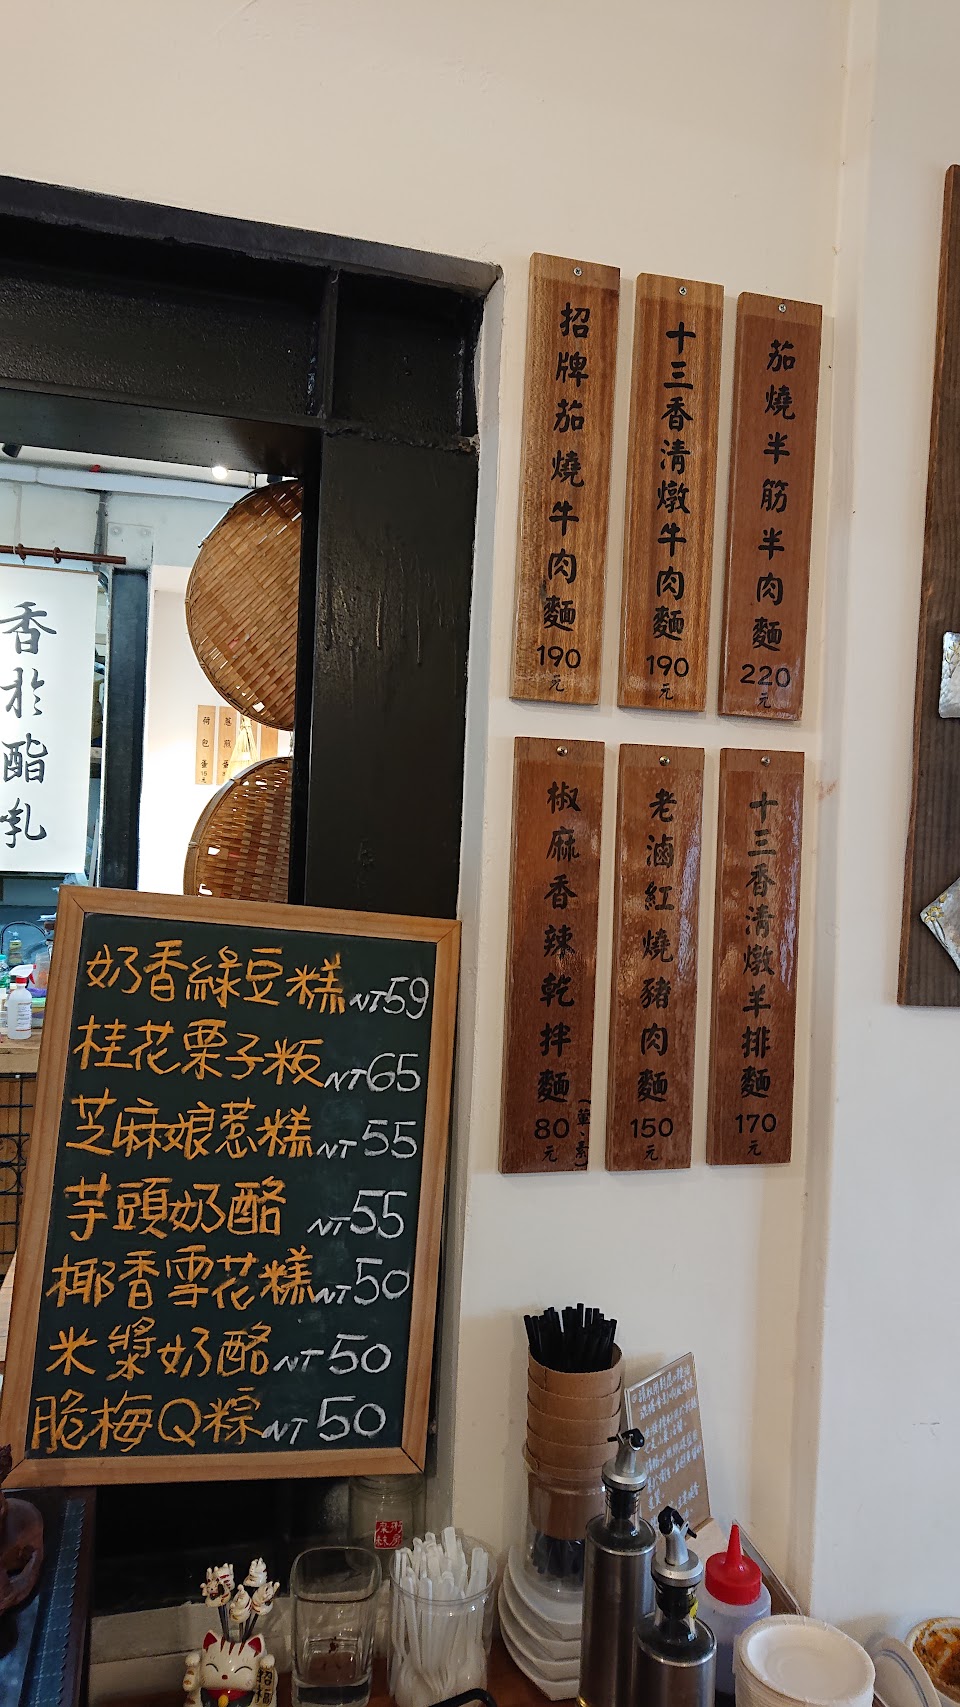 招牌茄燒牛肉麵
190
元
十三香清燉牛肉麵
190
元
茄燒半筋半肉麵
220
元
椒麻香辣乾拌麵
(葷、素)
80
元
老滷紅燒豬肉麵
150
元
十三香清燉羊排麵
170
元
香於酯乳
荷包蛋
15
元
蔥煎蛋
奶香綠豆糕NT59
桂花栗子粄NT65
芝麻娘惹糕NT55
芋頭奶酪 NT55
椰香雪花糕NT50
米漿奶酪NT50
脆梅Q粽NT50